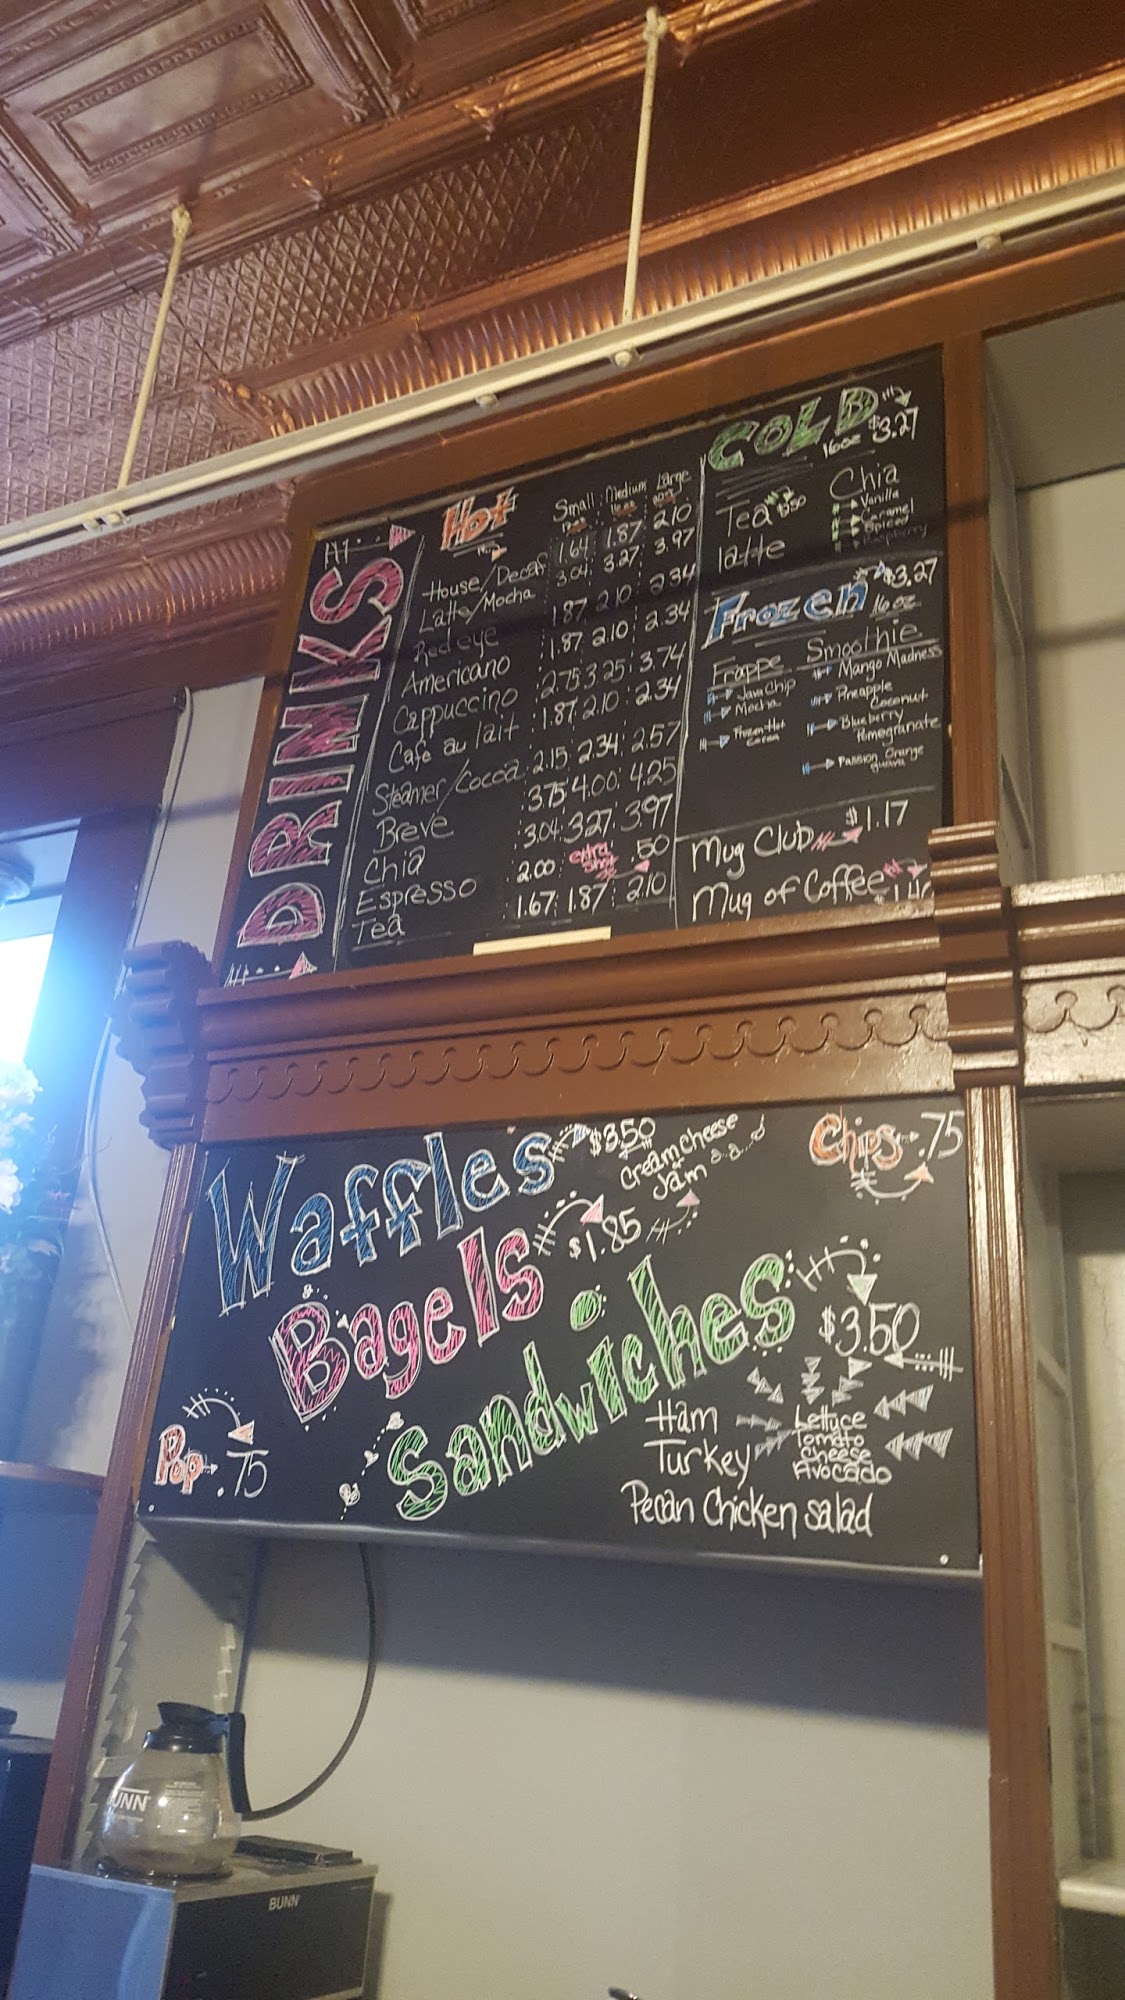 DRINKS
Hot
Small Medium Large
House/Decaf 1.64 1.87 2.10
Latte/Mocha 3.04 3.27 3.97
Redeye 1.87 2.10 2.34
Americano 1.87 2.10 2.34
Cappuccino 2.75 3.25 3.74
Cafe au lait 1.87 2.10 2.34
Steamer/Cocoa 2.15 2.34 2.57
Breve 3.75 4.00 4.25
Chia 3.04 3.27 3.97
Espresso 2.00 extra shot .50
Tea 1.67 1.87 2.10
COLD
16oz $3.27
Tea
latte
Chia
Vanilla
Caramel
Spiced
Raspberry
Frozen $3.27
16oz
Frappe
Java Chip
Mocha
Frozen Hot
Cocoa
Smoothie
Mango Madness
Pineapple
Coconut
Blueberry
Pomegranate
Passion Orange
guava
Mug Club $1.17
Mug of Coffee
Waffles $3.50
Cream Cheese
+
Jam
Chips .75
Bagels $1.85
Sandwiches $3.50
Ham
Turkey
Lettuce
Tomato
Cheese
Avocado
Pecan Chicken Salad
Pop .75
BUNN
BUNN